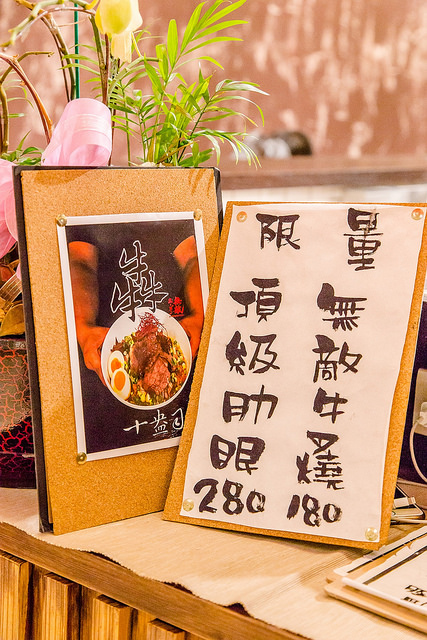 限量
無敵牛叉燒
180
頂級肋眼
280
犇
十盎司